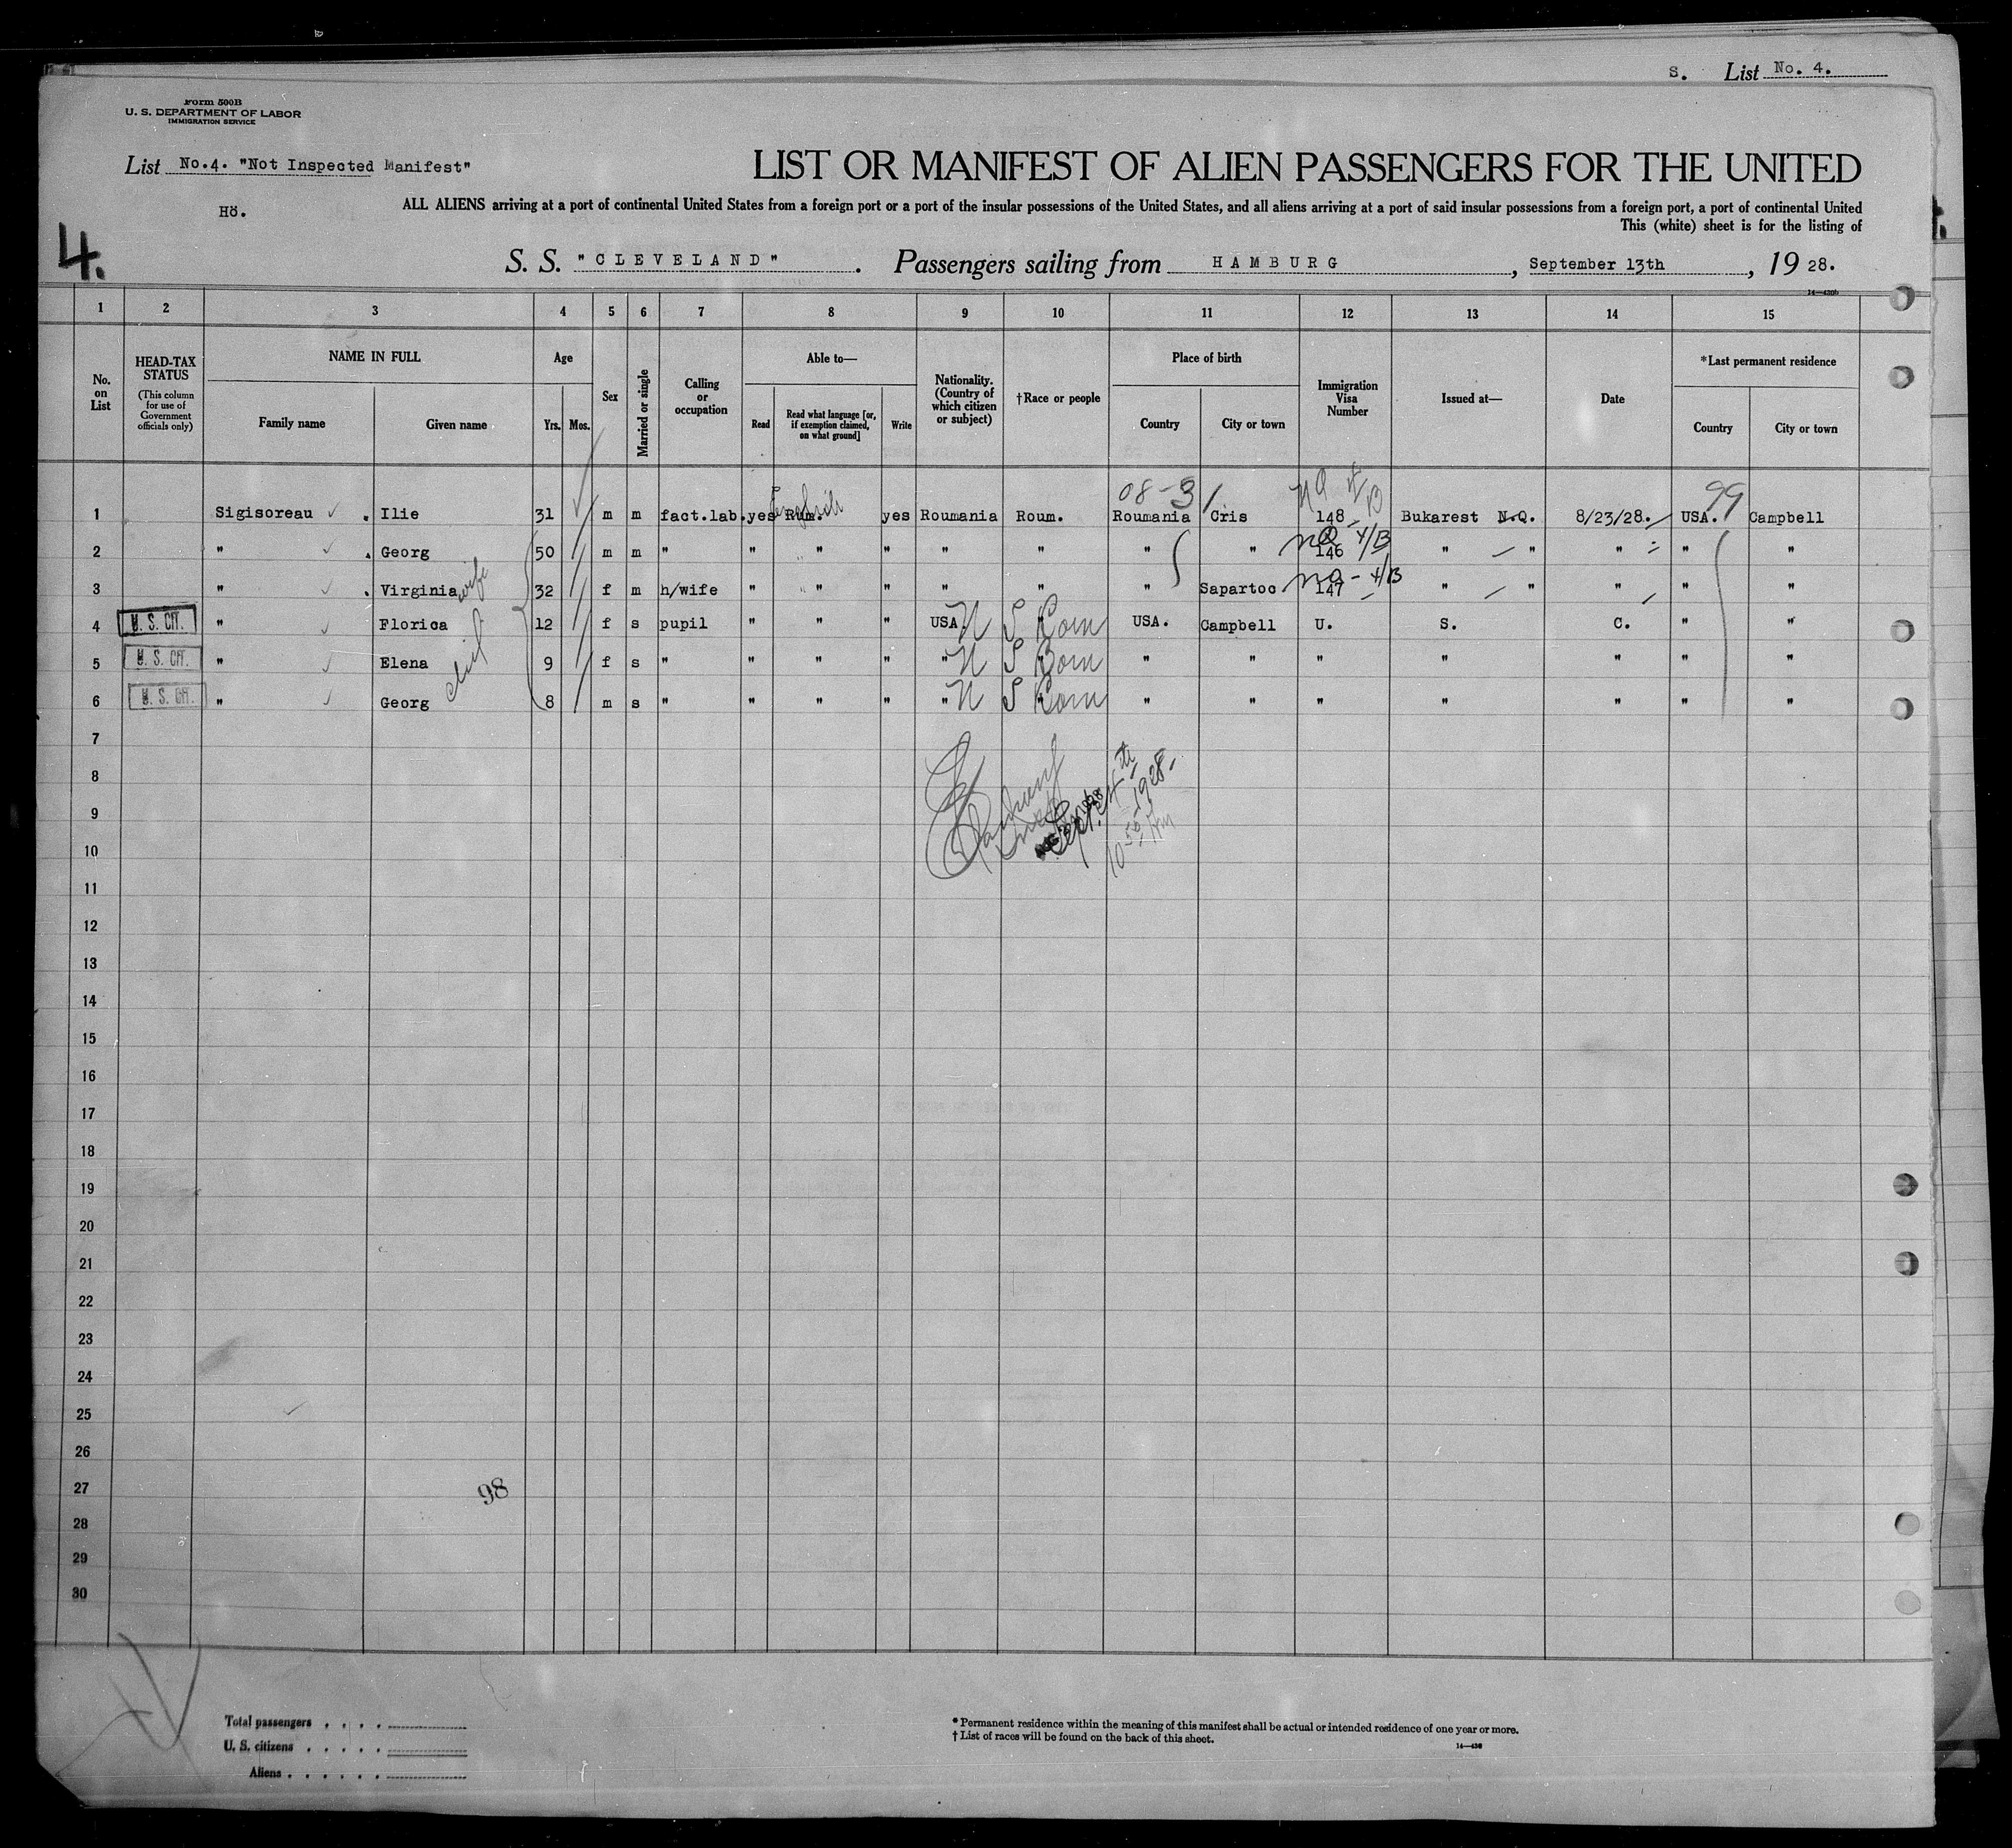 S. List No. 4.
Form 500B
U. S. DEPARTMENT OF LABOR
IMMIGRATION SERVICE
List No.4. "Not Inspected Manifest"
LIST OR MANIFEST OF ALIEN PASSENGERS FOR THE UNITED
Hö.
ALL ALIENS arriving at a port of continental United States from a foreign port or a port of the insular possessions of the United States, and all aliens arriving at a port of said insular possessions from a foreign port, a port of continental United
This (white) sheet is for the listing of
4.
S. S. "CLEVELAND". Passengers sailing from HAMBURG, September 13th, 1928.
14—430b
1 2 3 4 5 6 7 8 9 10 11 12 13 14 15
No. on List
HEAD-TAX STATUS (This column for use of Government officials only)
NAME IN FULL
Family name Given name
Age
Yrs. Mos.
Sex
Married or single
Calling or occupation
Able to—
Read Read what language [or, if exemption claimed, on what ground] Write
Nationality. (Country of which citizen or subject)
†Race or people
Place of birth
Country City or town
Immigration Visa Number
Issued at—
Date
*Last permanent residence
Country City or town
08-31 NQ 4/B 99
English
1 Sigisoreau . Ilie 31 m m fact.lab. yes Rum. yes Roumania Roum. Roumania Cris 148 Bukarest N.Q. 8/23/28. USA. Campbell
2 " . Georg 50 m m " " " " " " " " NQ 4/B 146 " " " " "
3 " . Virginia wife 32 f m h/wife " " " " " " Sapartoc NQ - 4/B 147 " " " " "
4 U. S. CIT. " Florica 12 f s pupil " " " USA N S Born USA. Campbell U. S. C. " "
5 U. S. CIT. " Elena 9 f s " " " " " N S Born " " " " " " "
6 U. S. CIT. " Georg 8 m s " " " " " N S Born " " " " " " "
7
8
9
10
Sept. 1928.
11
12
13
14
15
16
17
18
19
20
21
22
23
24
25
26
27
98
28
29
30
Total passengers . . . .
U. S. citizens . . . . .
Aliens . . . . . .
* Permanent residence within the meaning of this manifest shall be actual or intended residence of one year or more.
† List of races will be found on the back of this sheet.
14—430